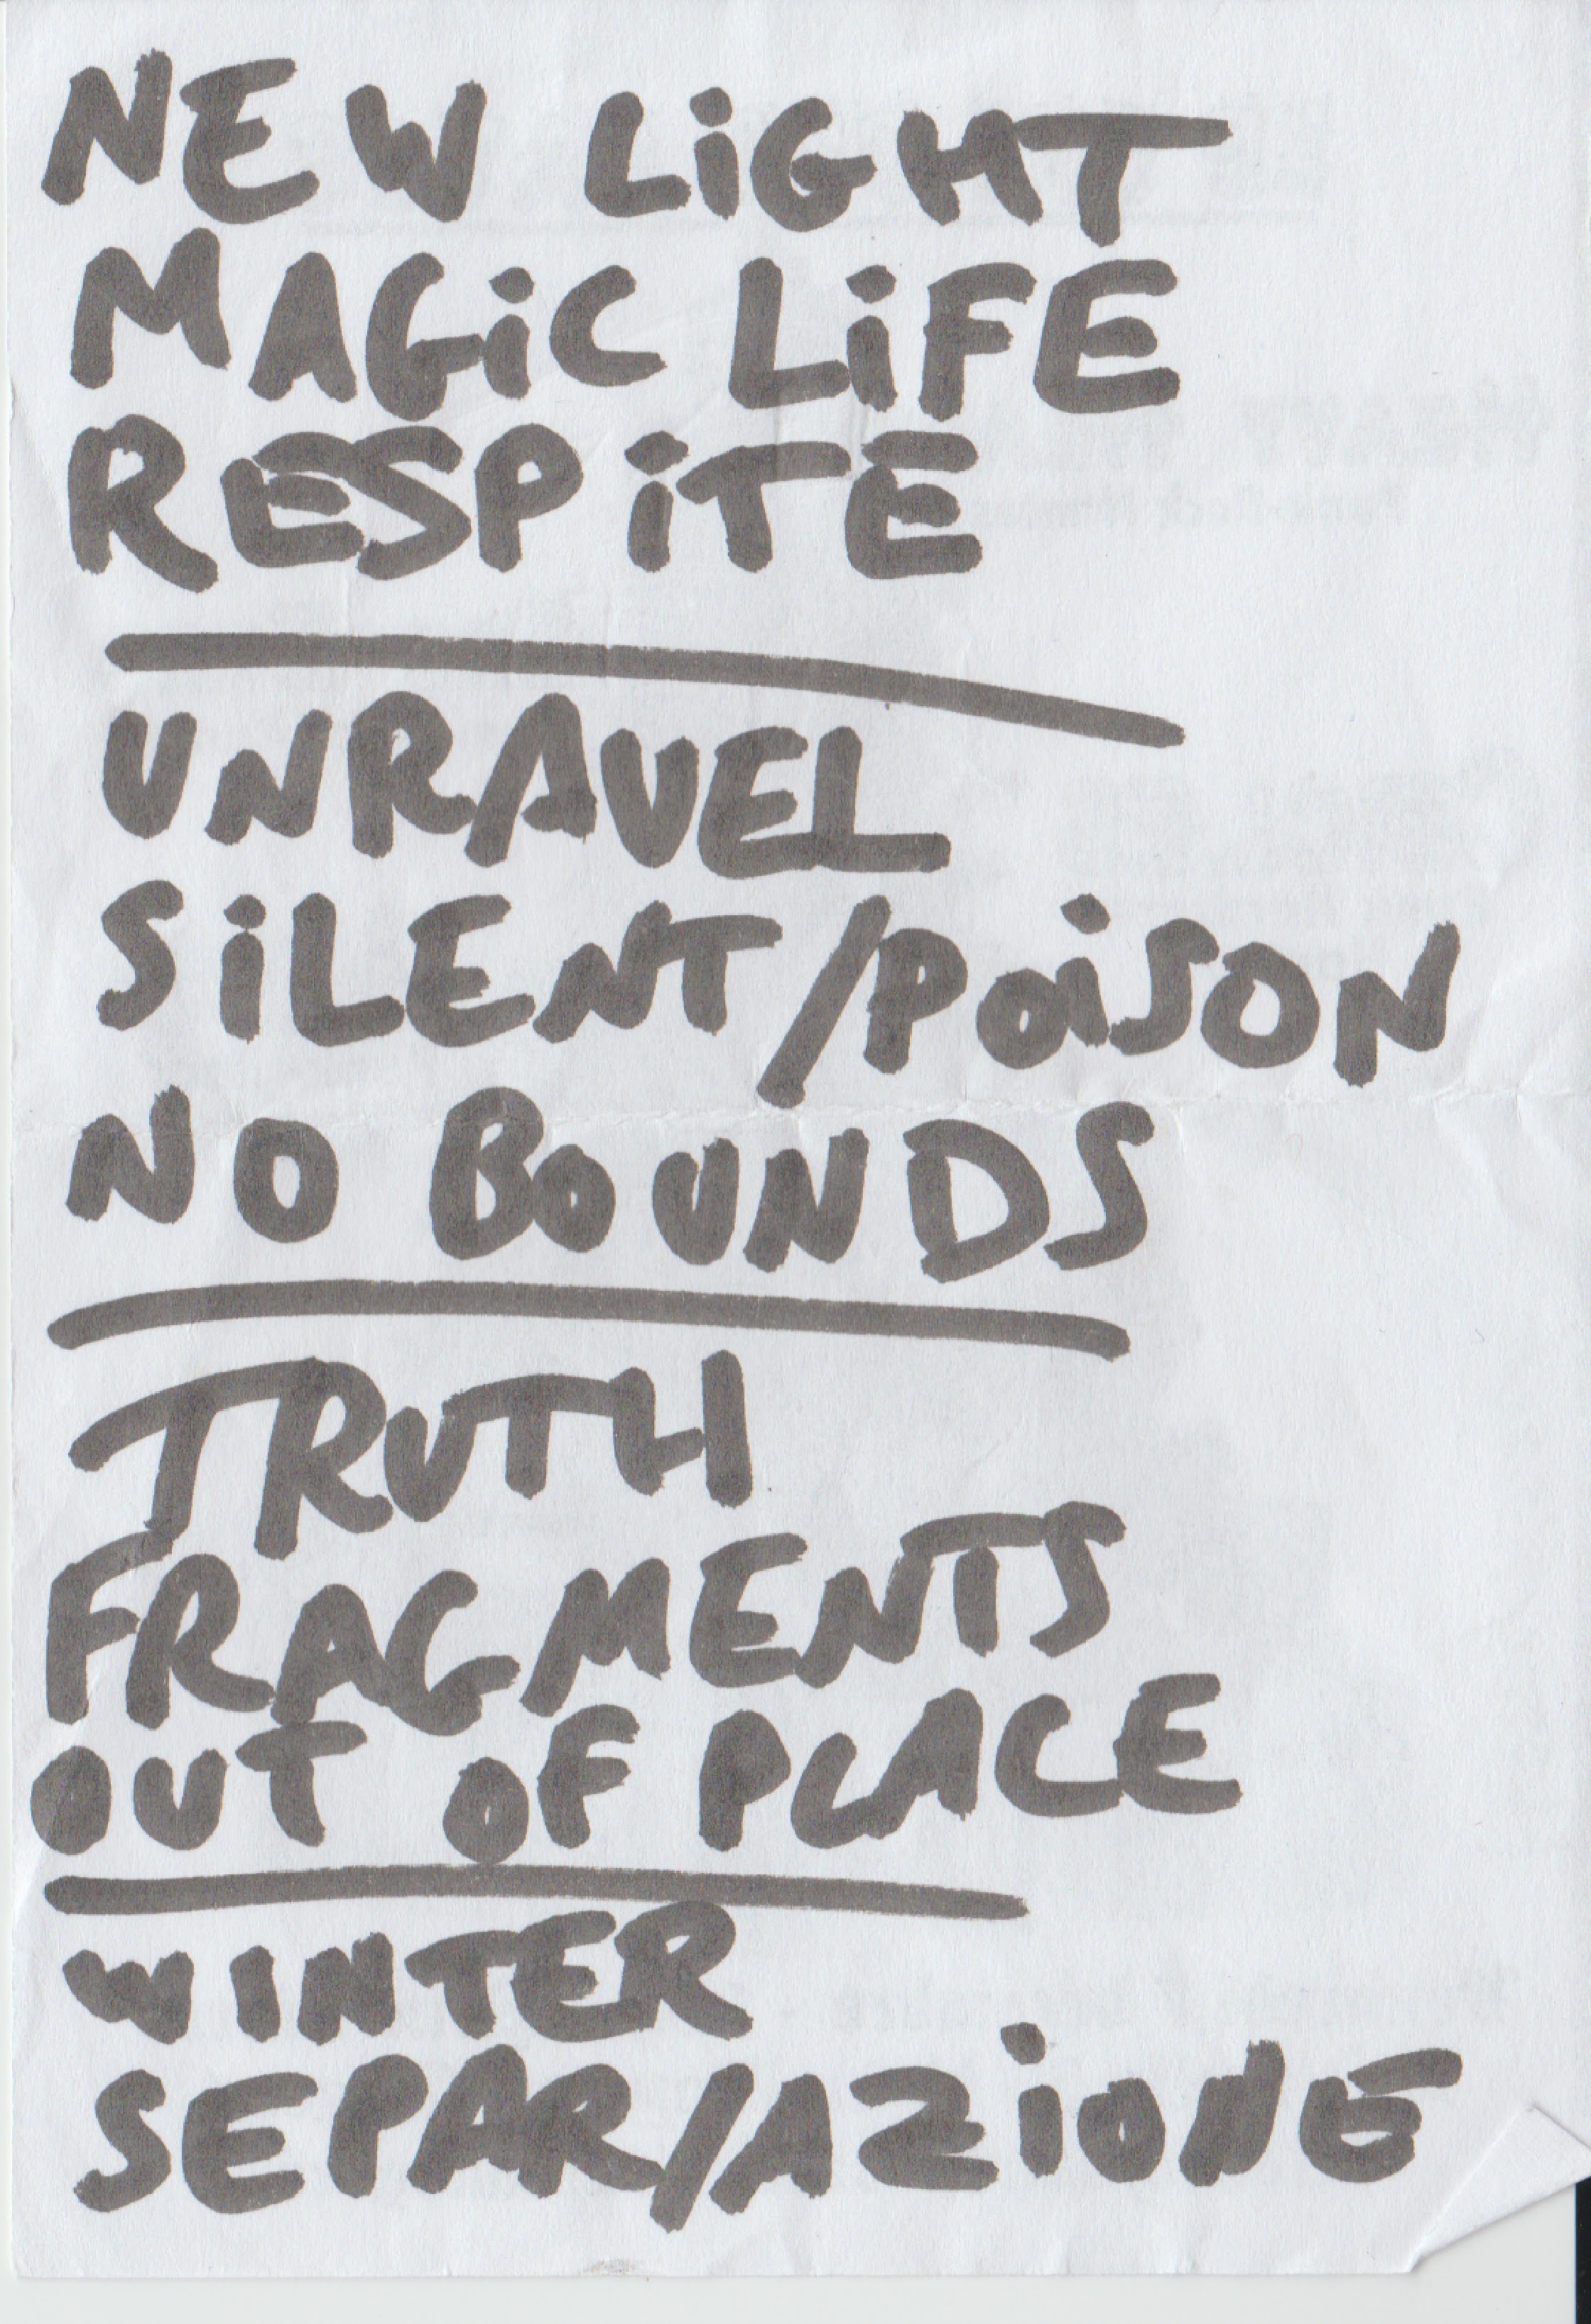 NEW LiGHT
MAGiC LiFE
RESPiTE
UNRAVEL
SiLENT/POiSON
NO BOUNDS
TRUTH
FRAGMENTS
OUT OF PLACE
WINTER
SEPAR/AZiONE